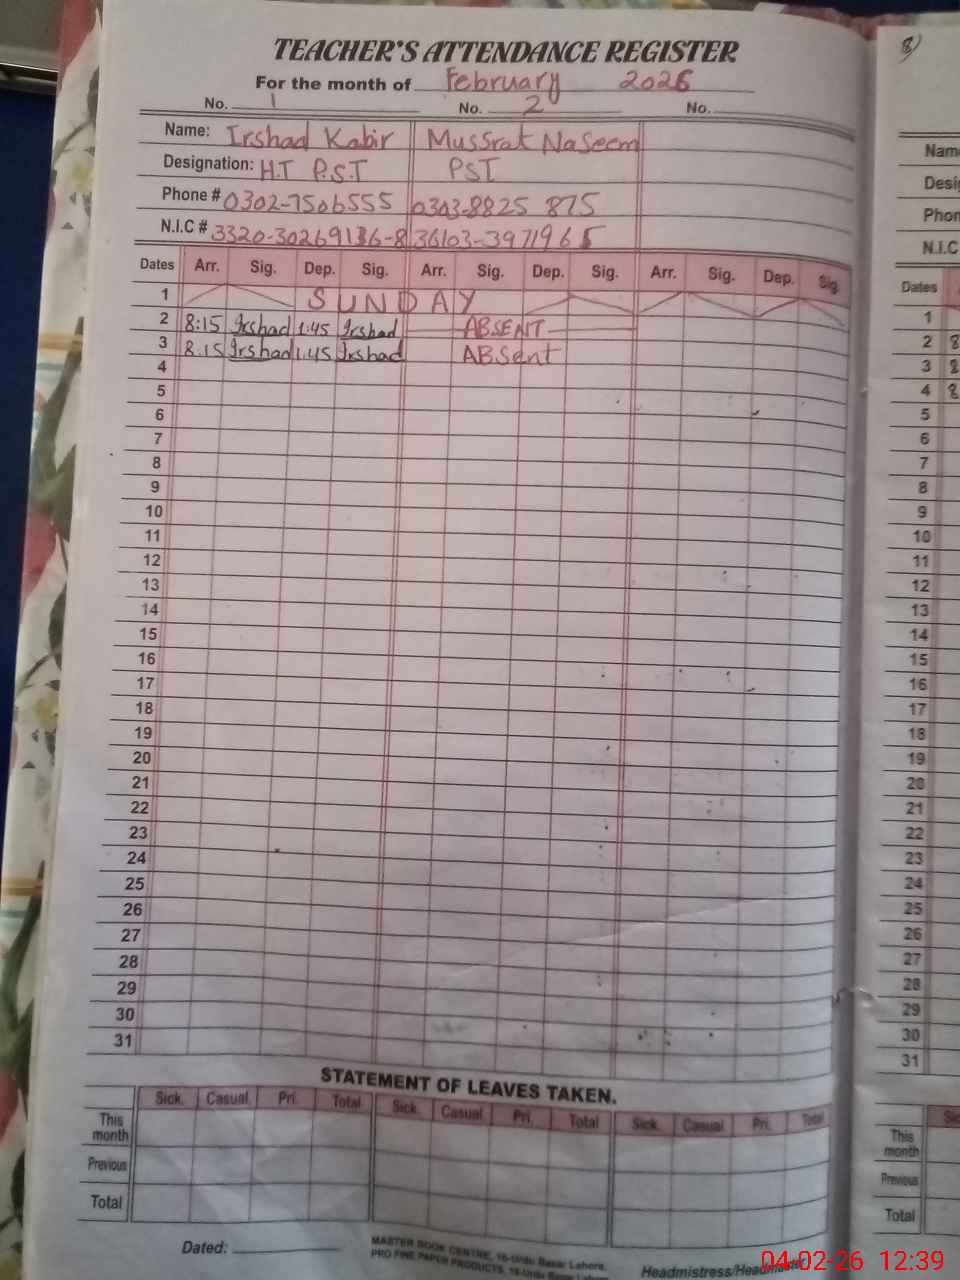 TEACHER'S ATTENDANCE REGISTER
For the month of February 2026
No. 1 No. 2 No.
Name: Irshad Kabir Mussrat Naseem
Designation: H.T P.S.T PST
Phone # 0302-7506555 0303-8825 875
N.I.C # 3320-30269136-8 36103-3971965
Dates Arr. Sig. Dep. Sig. Arr. Sig. Dep. Sig. Arr. Sig. Dep. Sig.
1 SUNDAY
2 8:15 Irshad 1:45 Irshad ABSENT
3 8:15 Irshad 1:45 Irshad ABSent
4
5
6
7
8
9
10
11
12
13
14
15
16
17
18
19
20
21
22
23
24
25
26
27
28
29
30
31
STATEMENT OF LEAVES TAKEN.
Sick. Casual Pri. Total Sick. Casual Pri. Total Sick. Casual Pri. Total
This month
Previous
Total
Dated:
MASTER BOOK CENTRE, 16-Urdu Bazar Lahore.
PRO FINE PAPER PRODUCTS, 16-Urdu Bazar Lahore
Headmistress/Headmaster
8)
Name
Desi
Phon
N.I.C
Dates
1
2 8
3 8
4 8
5
6
7
8
9
10
11
12
13
14
15
16
17
18
19
20
21
22
23
24
25
26
27
28
29
30
31
Sic
This month
Previous
Total
04-02-26 12:39